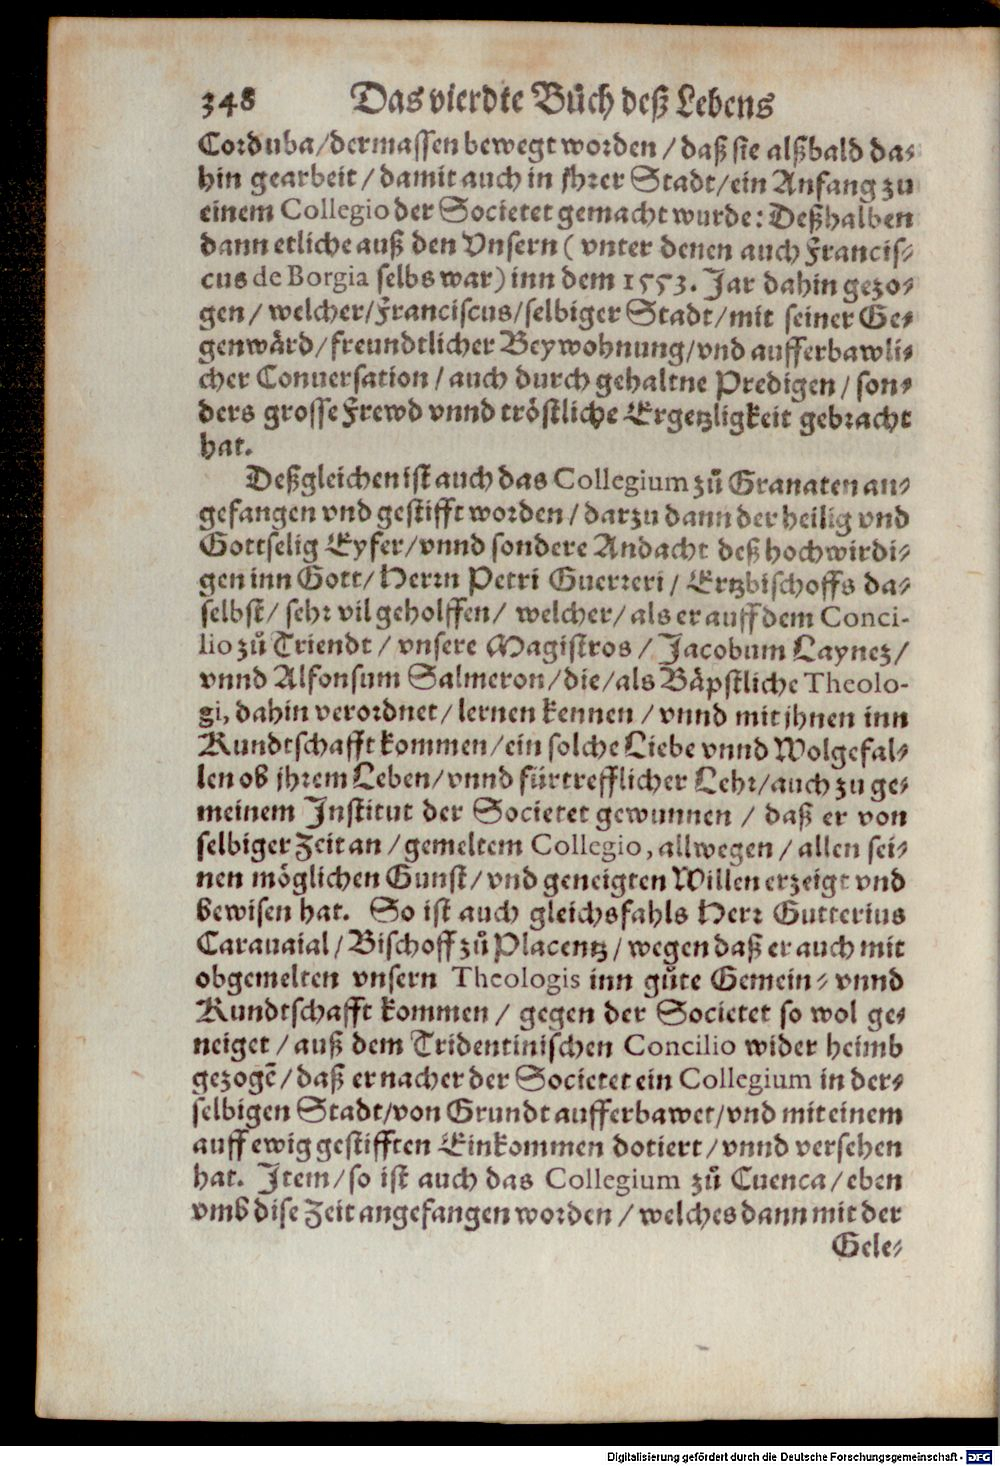 348 Das vierdte Bůch deß Lebens
Corduba/dermassen bewegt worden / daß sie alßbald da-
hin gearbeit / damit auch in jhrer Stadt/ein Anfang zu
einem Collegio der Societet gemacht wurde: Deßhalben
dann etliche auß den Vnsern ( vnter denen auch Francis-
cus de Borgia selbs war) inn dem 1553. Jar dahin gezo-
gen / welcher/Franciscus/selbiger Stadt/mit seiner Ge-
genwård/freundtlicher Beywohnung/vnd aufferbawli-
cher Conuersation / auch durch gehaltne Predigen / son-
ders grosse Frewd vnnd tröstliche Ergetzligkeit gebracht
hat.
Deßgleichen ist auch das Collegium zů Granaten an-
gefangen vnd gestifft worden / darzu dann der heilig vnd
Gottselig Eyfer/vnnd sondere Andacht deß hochwirdi-
gen inn Gott/ Herrn Petri Guerreri / Ertzbischoffs da-
selbst/ sehr vil geholffen/ welcher/ als er auff dem Conci-
lio zů Triendt / vnsere Magistros / Jacobum Laynez/
vnnd Alfonsum Salmeron/die/als Båpstliche Theolo-
gi, dahin verordnet/lernen kennen / vnnd mit jhnen inn
Kundtschafft kommen/ein solche Liebe vnnd Wolgefal-
len ob jhrem Leben/vnnd fürtrefflicher Lehr/auch zu ge-
meinem Institut der Societet gewunnen / daß er von
selbiger Zeit an /gemeltem Collegio, allwegen / allen sei-
nen möglichen Gunst/vnd geneigten Willen erzeigt vnd
bewisen hat. So ist auch gleichsfahls Herr Gutterius
Carauaial/Bischoff zů Placentz/wegen daß er auch mit
obgemelten vnsern Theologis inn gůte Gemein- vnnd
Kundtschafft kommen / gegen der Societet so wol ge-
neiget / auß dem Tridentinischen Concilio wider heimb
gezogẽ/daß er nacher der Societet ein Collegium in der-
selbigen Stadt/von Grundt aufferbawet/vnd mit einem
auff ewig gestifften Einkommen dotiert/vnnd versehen
hat. Item/so ist auch das Collegium zů Cuenca/eben
vmb dise Zeit angefangen worden / welches dann mit der
Gele-
Digitalisierung gefördert durch die Deutsche Forschungsgemeinschaft - DFG